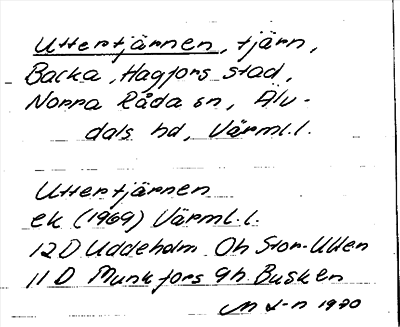 Uttertjärnen, tjärn,
Backa, Hagfors stad,
Norra Råda sn, Älv-
dals hd, Värml.l.
Uttertjärnen
ek (1969) Värml.l.
12D Uddeholm 0h Stor-Ullen
11D Munkfors 9h Busken
1970